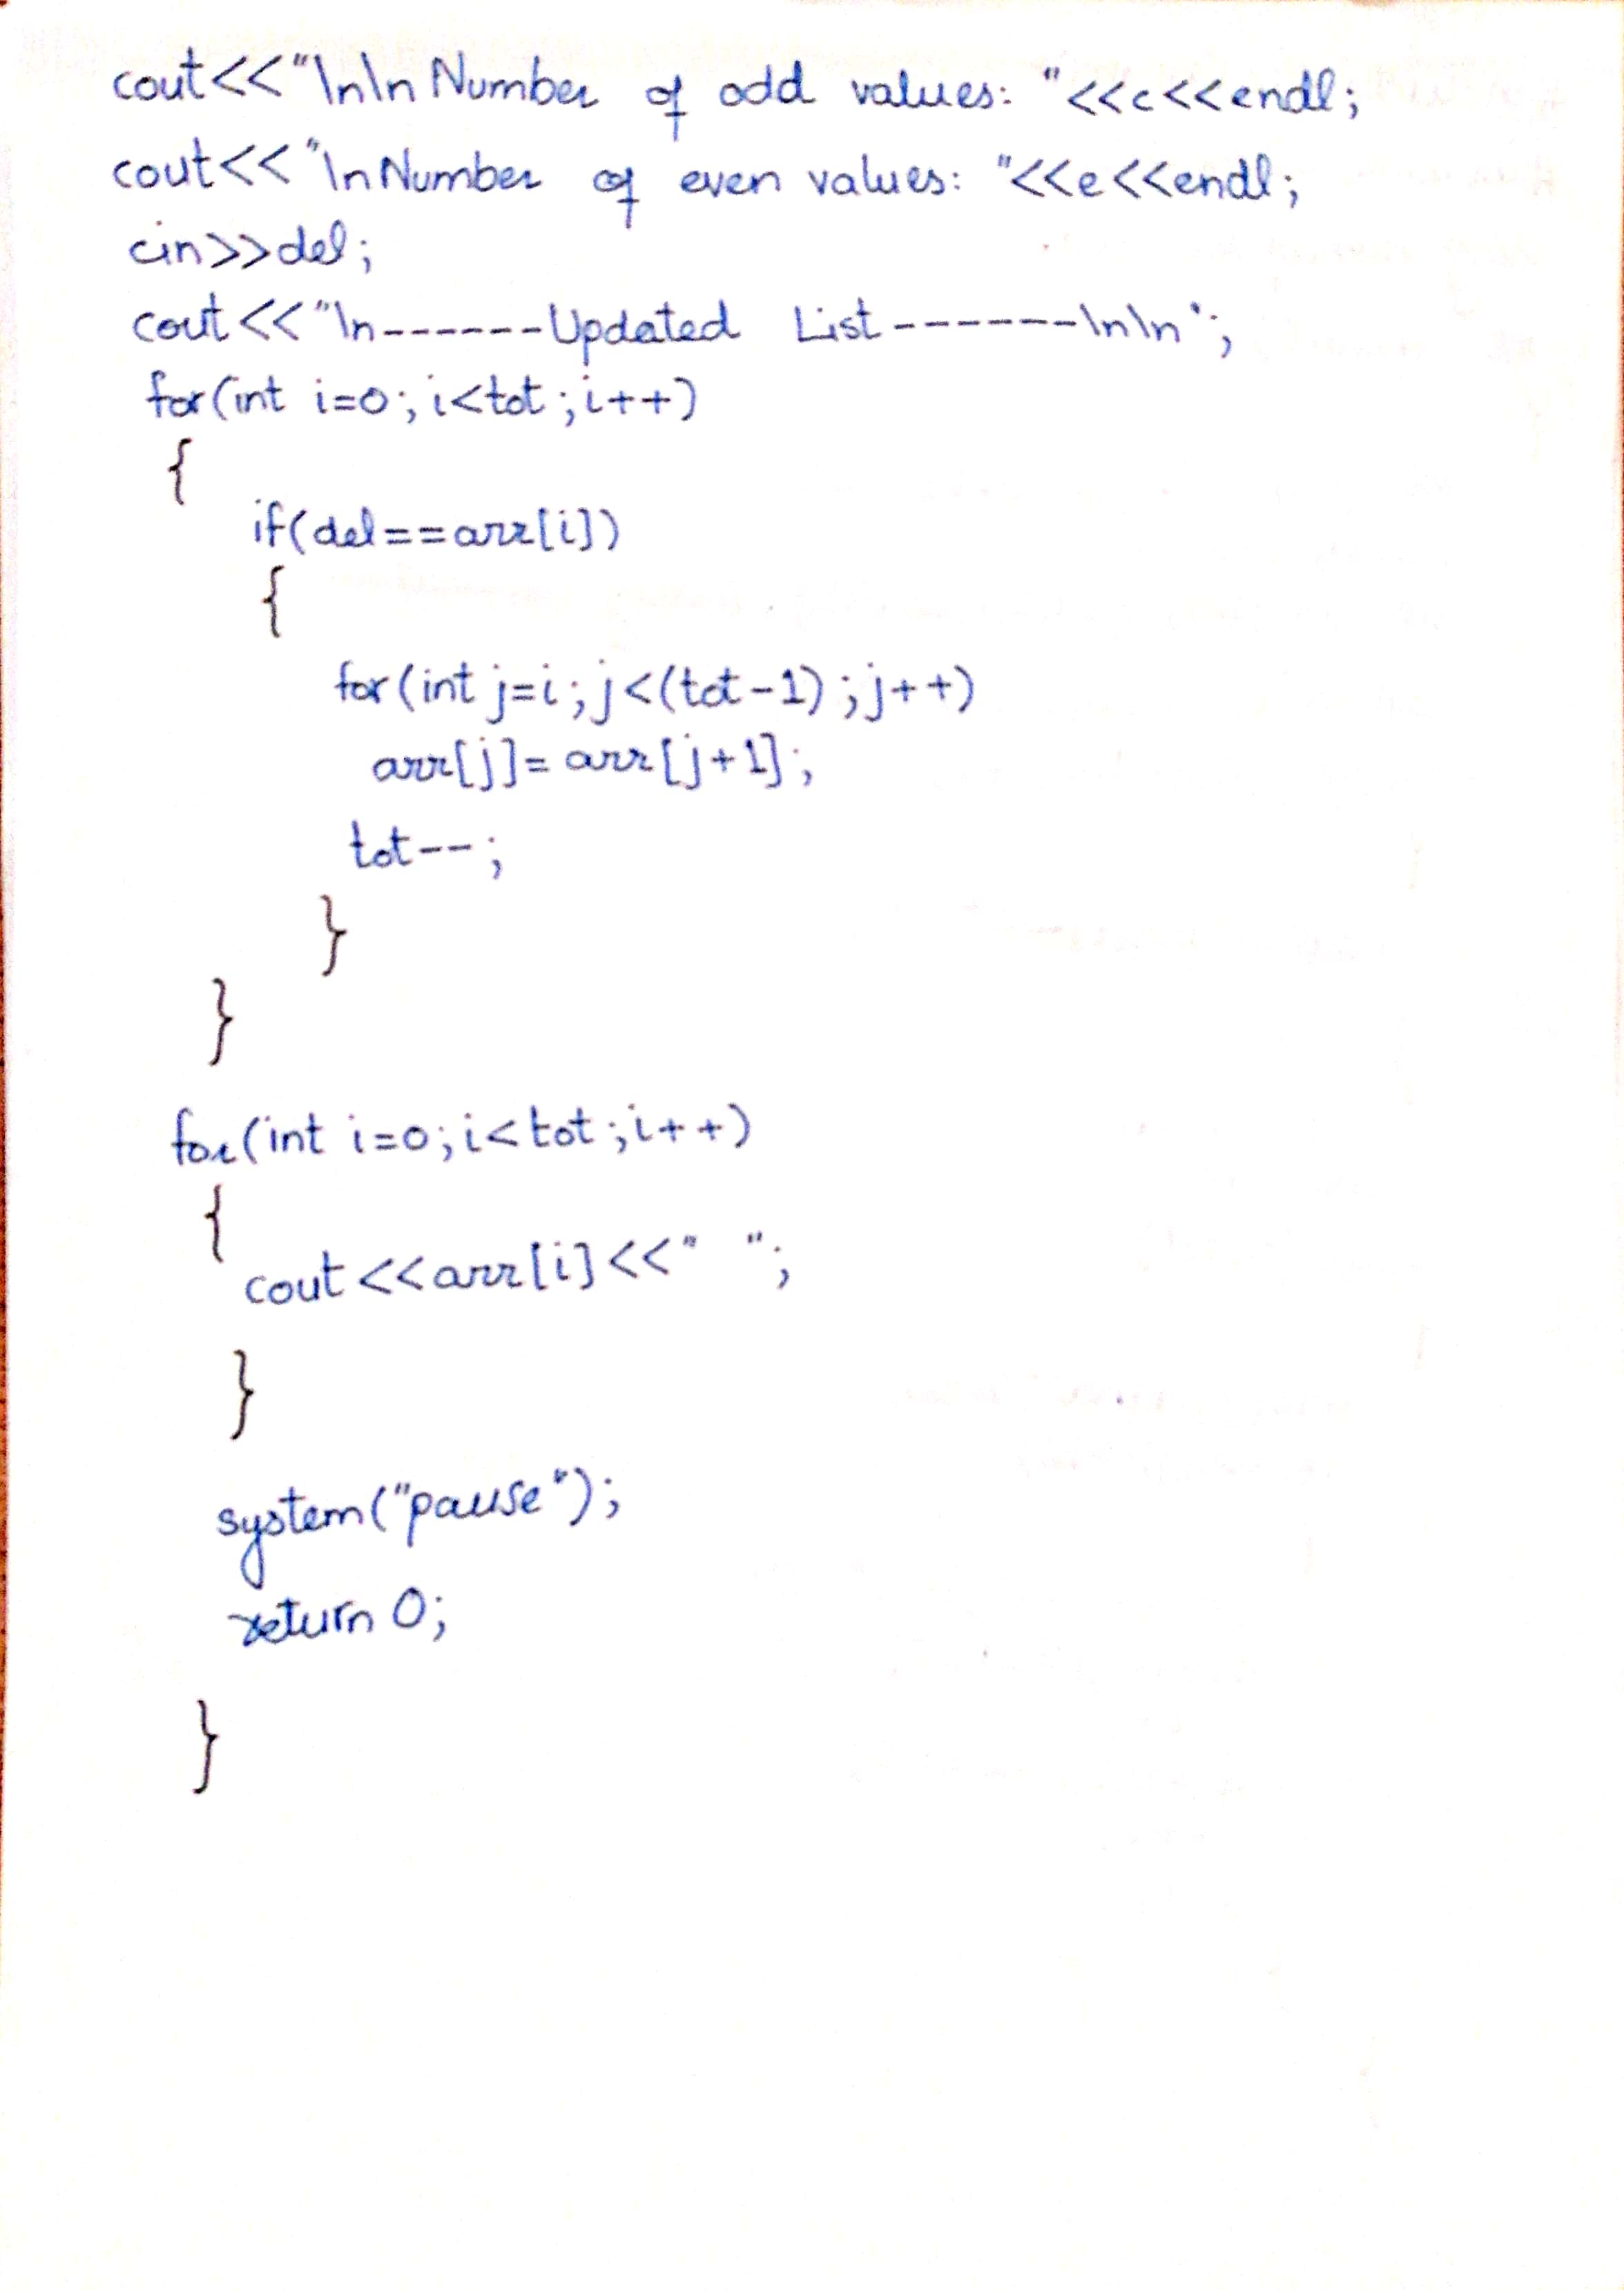 cout<<"\n\nNumber of odd values: "<<c<<endl;
cout<<"\nNumber of even values: "<<e<<endl;
cin>>del;
cout<<"\n------Updated List-------\n\n";
for(int i=0;i<tot;i++)
{
if(del==arr[i])
{
for(int j=i;j<(tot-1);j++)
arr[j]=arr[j+1];
tot--;
}
}
for(int i=0;i<tot;i++)
{
cout<<arr[i]<<" ";
}
system("pause");
return 0;
}